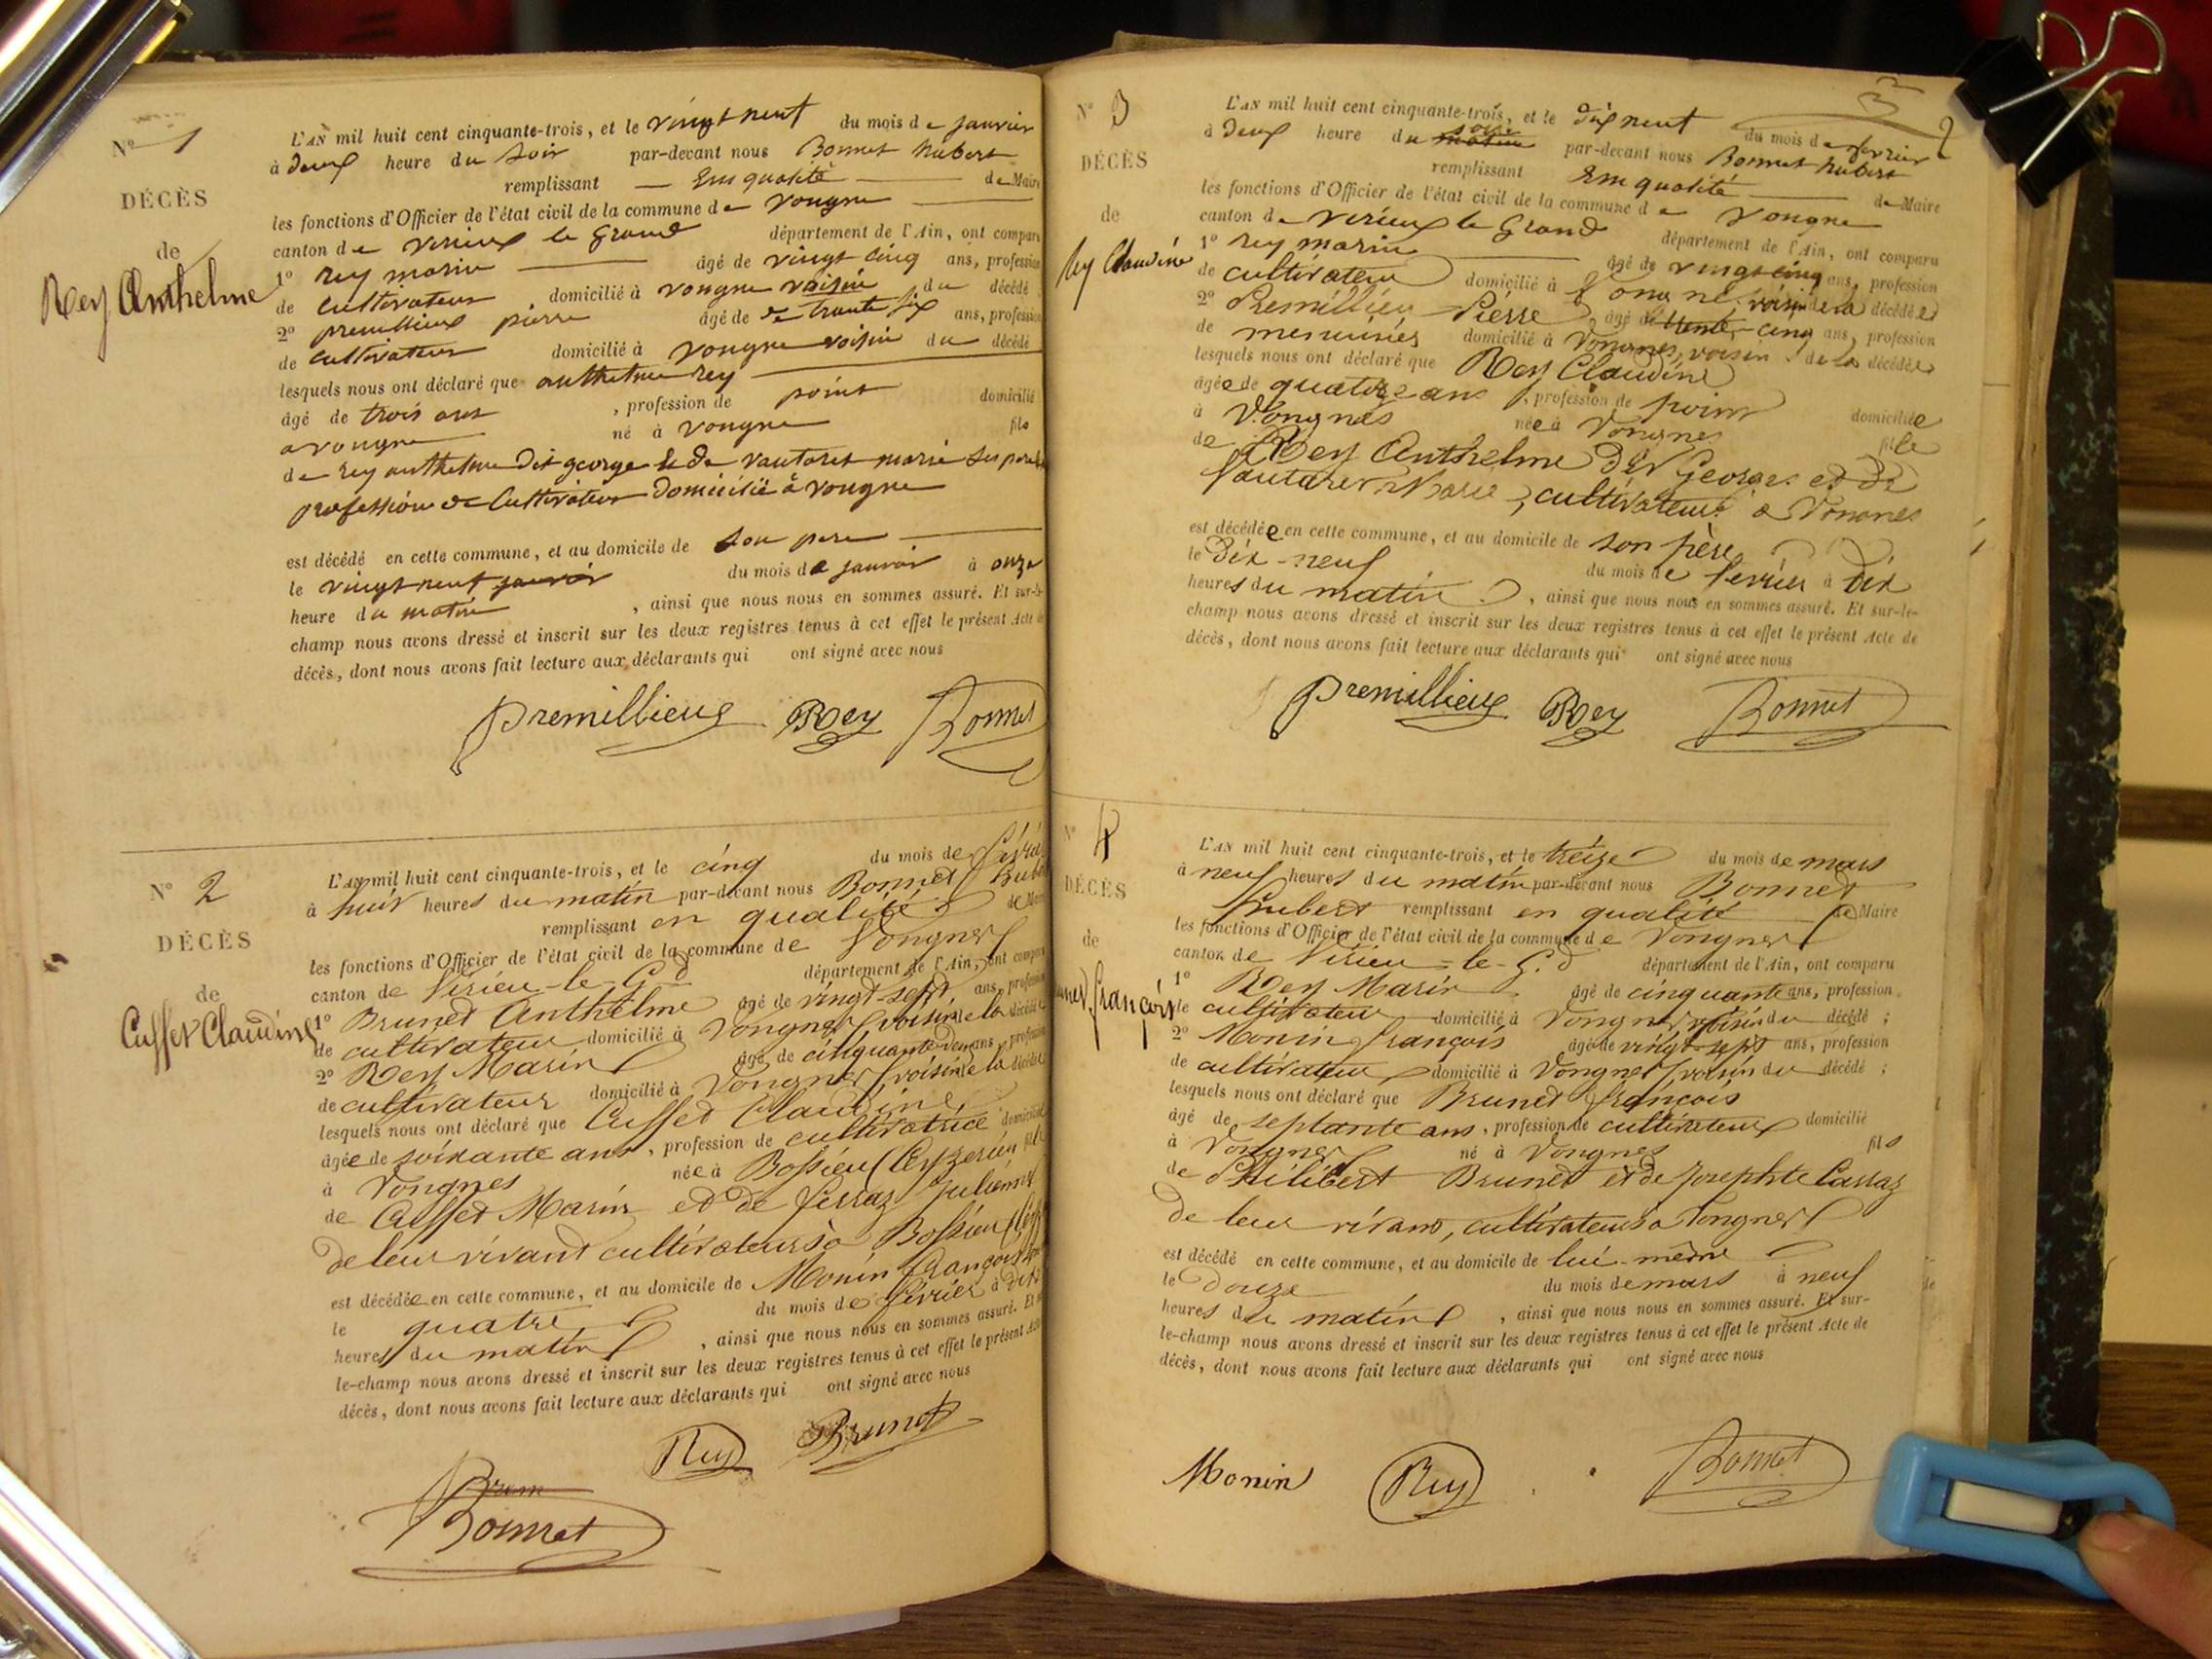 N° 1
DÉCÈS
de
Rey Anthelme
L'AN mil huit cent cinquante-trois, et le vingt neuf du mois de janvier
à deux heure du soir par-devant nous Bonnet hubert
remplissant — En qualité — de Maire
les fonctions d'Officier de l'état civil de la commune de vongne
canton de virieux le grand département de l'Ain, ont comparu
1° rey marin âgé de vingt cinq ans, profession
de cultivateur domicilié à vongne voisin du décédé
2° premillieux pierre âgé de trante six ans, profession
de cultivateur domicilié à vongne voisin du décédé
lesquels nous ont déclaré que anthelme rey
âgé de trois ans , profession de point domicilié
a vongne né à vongne fils
de rey anthelme dit george et de vautaret marie ses
profession de cultivateur domicilié à vongne
est décédé en cette commune, et au domicile de son pere
le vingt neuf janvier du mois de janvier à onze
heure du matin , ainsi que nous nous en sommes assuré. Et sur-le-
champ nous avons dressé et inscrit sur les deux registres tenus à cet effet le présent Acte de
décès, dont nous avons fait lecture aux déclarants qui ont signé avec nous
Premillieux Rey Bonnet
N° 2
DÉCÈS
de
Cusset Claudine
L'AN mil huit cent cinquante-trois, et le cinq du mois de
à huit heures du matin par-devant nous Bonnet
remplissant en qualité de Maire
les fonctions d'Officier de l'état civil de la commune de Vongnes
canton de Virieu-le-Gd département de l'Ain, ont comparu
1° Brunet Anthelme âgé de vingt-sept ans, profession
de cultivateur domicilié à Vongnes, voisin de la décédée
2° Rey Marin âgé de cinquante deux ans, profession
de cultivateur domicilié à Vongnes, voisin de la décédée
lesquels nous ont déclaré que Cusset Claudine
âgée de soixante ans, profession de cultivatrice domiciliée
à Vongnes née à Bossieu (Ceyzerieu fille
de Cusset Marin et de ferraz julienne
de leur vivant cultivateurs à Bossieu
est décédée en cette commune, et au domicile de Monin françois
le quatre du mois de février à
heures du matin , ainsi que nous nous en sommes assuré. Et sur-
le-champ nous avons dressé et inscrit sur les deux registres tenus à cet effet le présent Acte
décès, dont nous avons fait lecture aux déclarants qui ont signé avec nous
Rey Brunet
Brun
Bonnet
3
N° 3
DÉCÈS
de
Rey Claudine
L'AN mil huit cent cinquante-trois, et le dix neuf du mois de fevrier
à deux heure du matin soir par-devant nous Bonnet hubert
remplissant En qualité de Maire
les fonctions d'Officier de l'état civil de la commune de Vongne
canton de virieux le Grand département de l'Ain, ont comparu
1° rey marin âgé de vingt cinq ans, profession
de cultivateur domicilié à Vongne voisin de la décédée
2° Premillieu Pierre âgé de trente-cinq ans, profession
de menuisier domicilié à Vongnes, voisin de la décédée
lesquels nous ont déclaré que Rey Claudine
âgée de quatorze ans , profession de point domiciliée
à Vongnes née à Vongnes fille
de Rey Anthelme dit Georges et de
Vautaret Marie, cultivateurs à Vongnes
est décédée en cette commune, et au domicile de son père
le dix-neuf du mois de fevrier à dix
heures du matin , ainsi que nous nous en sommes assuré. Et sur-le-
champ nous avons dressé et inscrit sur les deux registres tenus à cet effet le présent Acte de
décès, dont nous avons fait lecture aux déclarants qui ont signé avec nous
Premillieux Rey Bonnet
N° 4
DÉCÈS
de
françois
L'AN mil huit cent cinquante-trois, et le treize du mois de mars
à neuf heures du matin par-devant nous Bonnet
hubert remplissant en qualité de Maire
les fonctions d'Officier de l'état civil de la commune de Vongnes
canton de Virieu-le-G.d département de l'Ain, ont comparu
1° Rey Marin âgé de cinquante ans, profession
de cultivateur domicilié à Vongnes voisin du décédé ;
2° Monin françois âgé de vingt-sept ans, profession
de cultivateur domicilié à Vongnes, voisin du décédé ;
lesquels nous ont déclaré que Brunet françois
âgé de septante ans, profession de cultivateur domicilié
à Vongnes né à Vongnes fils
de Philibert Brunet et de Josephte Carraz
de leur vivant, cultivateurs à Vongnes
est décédé en cette commune, et au domicile de lui-même
le douze du mois de mars à neuf
heures du matin , ainsi que nous nous en sommes assuré. Et sur-
le-champ nous avons dressé et inscrit sur les deux registres tenus à cet effet le présent Acte de
décès, dont nous avons fait lecture aux déclarants qui ont signé avec nous
Monin Rey Bonnet